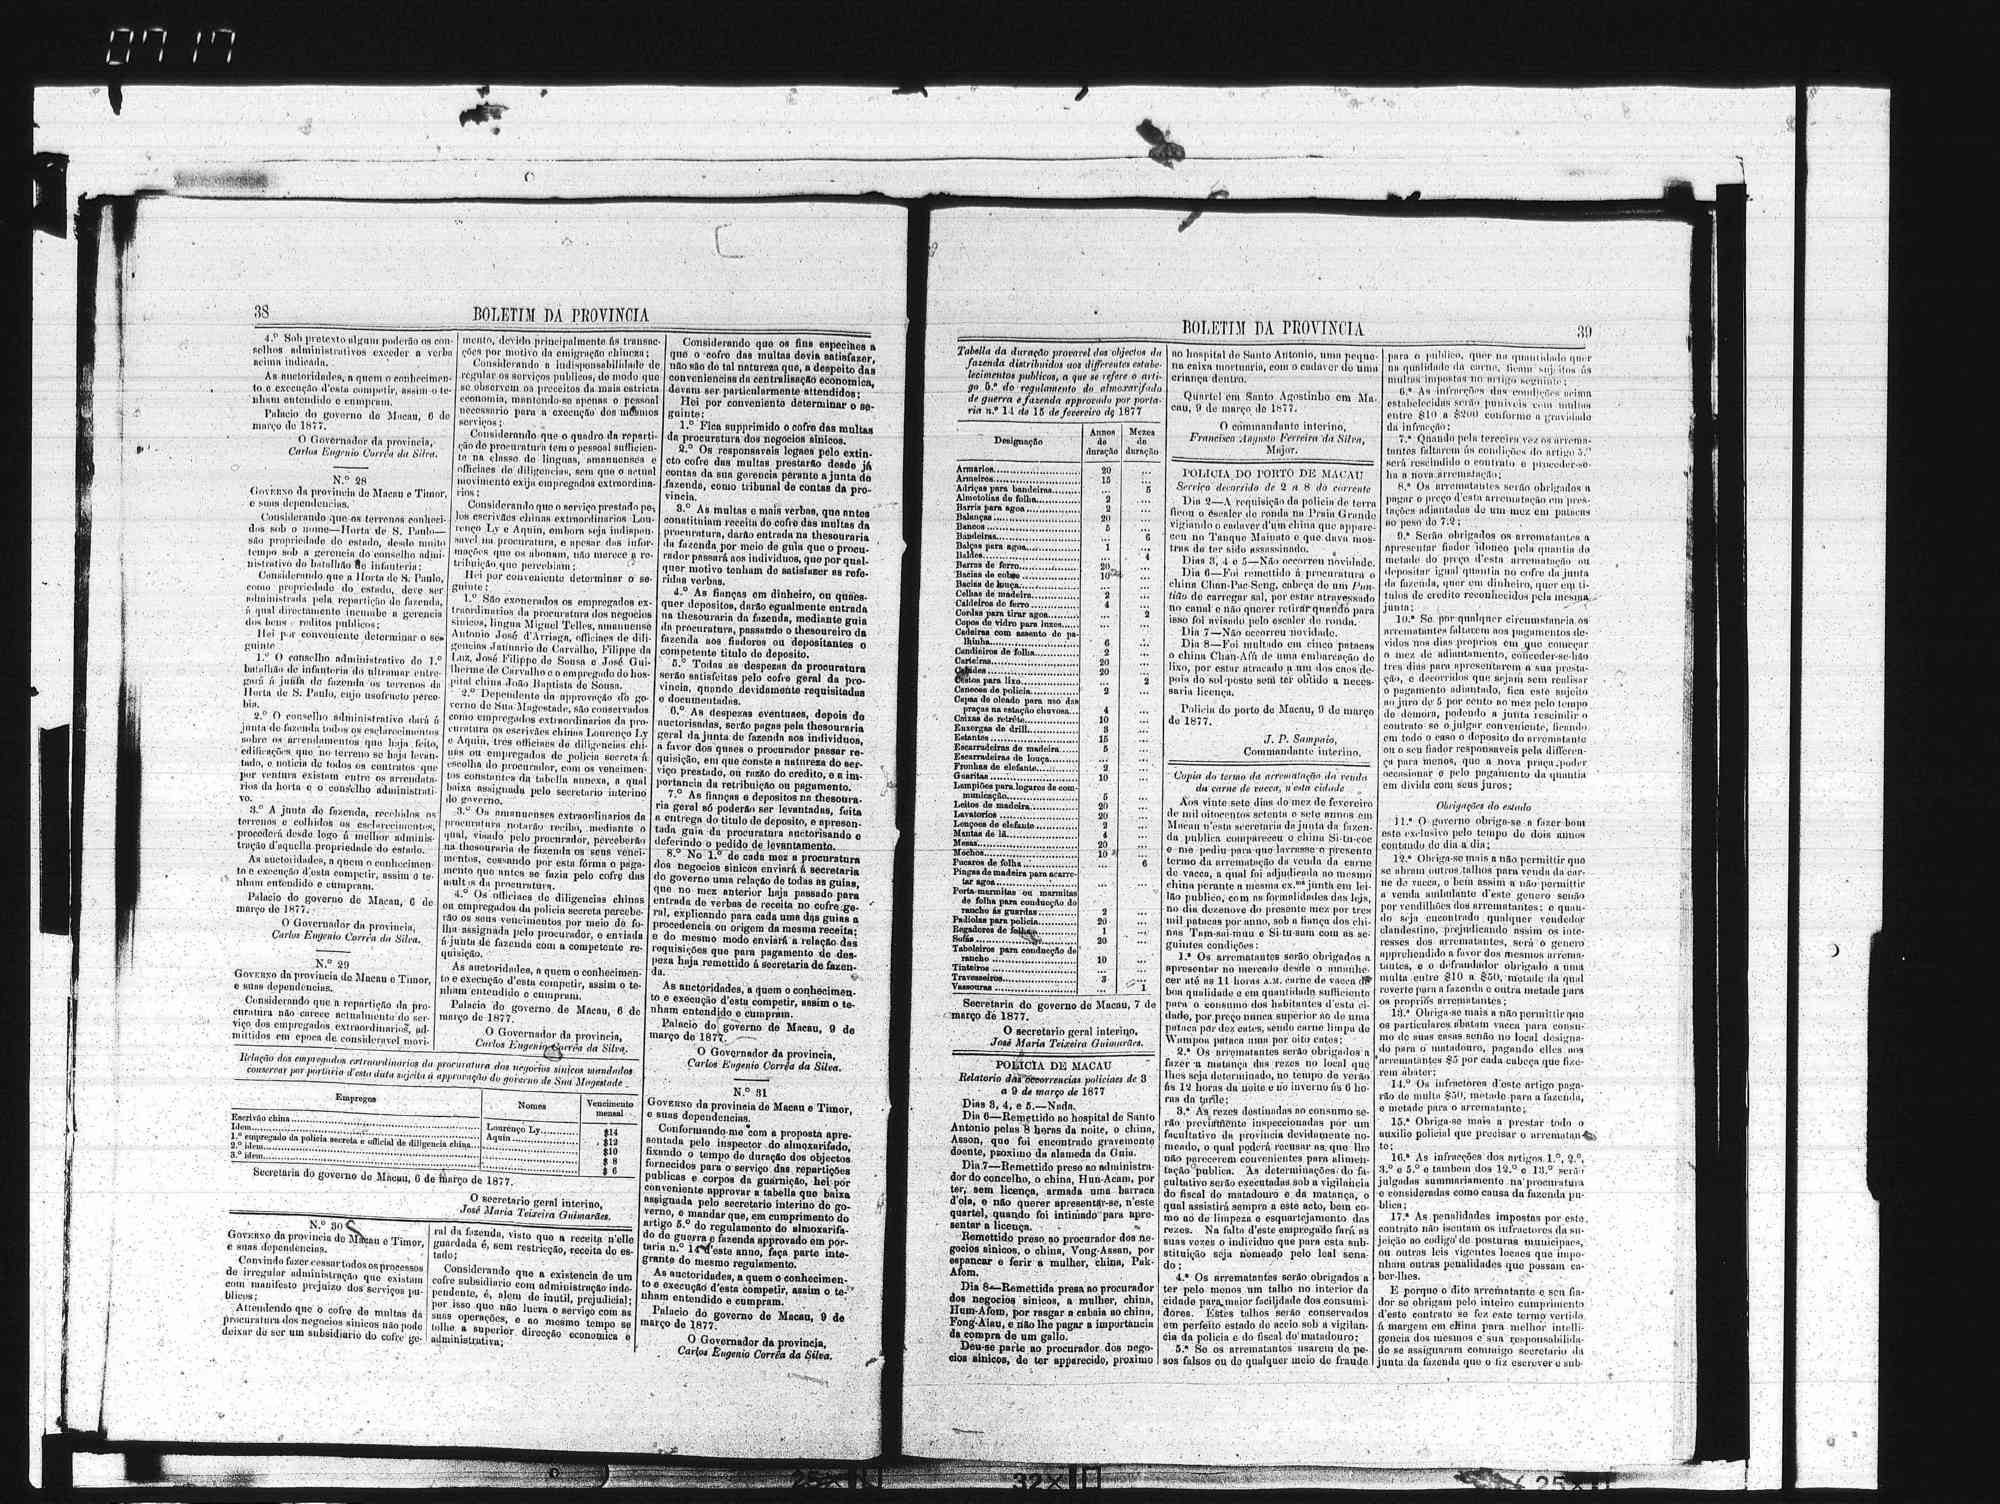 0717
38
BOLETIM DA PROVINCIA
4.º Sob pretexto algum poderão os con-
selhos administrativos exceder a verba
acima indicada.
As auctoridades, a quem o conhecimen-
to e execução d'esta competir, assim o te-
nham entendido e cumpram.
Palacio do governo de Macau, 6 de
março de 1877.
O Governador da provincia,
Carlos Eugenio Corrêa da Silva.
N.º 28
GOVERNO da provincia de Macau e Timor,
e suas dependencias.
Considerando que os terrenos conheci-
dos sob o nome—Horta de S. Paulo—
são propriedade do estado, desde muito
tempo sob a gerencia do conselho admi-
nistrativo do batalhão de infanteria;
Considerando que a Horta de S. Paulo,
como propriedade do estado, deve ser
administrada pela repartição de fazenda,
á qual directamente incumbe a gerencia
dos bens e reditos publicos;
Hei por conveniente determinar o se-
guinte
1.º O conselho administrativo do 1.º
batalhão de infanteria do ultramar entre-
gará á junta de fazenda os terrenos da
Horta de S. Paulo, cujo usofructo perce-
bia.
2.º O conselho administrativo dará á
junta de fazenda todos os esclarecimentos
sobre os arrendamentos que haja feito,
edificações que no terreno se haja levan-
tado, e noticia de todos os contratos que
por ventura existam entre os arrendata-
rios da horta e o conselho administrati-
vo.
3.º A junta de fazenda, recebidos os
terrenos e colhidos os esclarecimentos,
procederá desde logo á melhor adminis-
tração d'aquella propriedade do estado.
As auctoridades, a quem o conhecimen-
to e execução d'esta competir, assim o te-
nham entendido e cumpram.
Palacio do governo de Macau, 6 de
março de 1877.
O Governador da provincia,
Carlos Eugenio Corrêa da Silva.
N.º 29
GOVERNO da provincia de Macau e Timor,
e suas dependencias.
Considerando que a repartição da pro-
curatura não carece actualmente do ser-
viço dos empregados extraordinarios, ad-
mittidos em epoca de consideravel movi-
mento, devido principalmente ás transac-
ções por motivo da emigração chineza;
Considerando a indispensabilidade de
regular os serviços publicos, de modo que
se observem os preceitos da mais estricta
economia, mantendo-se apenas o pessoal
necessario para a execução dos mesmos
serviços;
Considerando que o quadro da reparti-
ção de procuratura tem o pessoal sufficien-
te na classe de linguas, amanuenses e
officiaes de diligencias, sem que o actual
movimento exija empregados extraordina-
rios;
Considerando que o serviço prestado pe-
los escrivães chinas extraordinarios Lou-
renço Ly e Aquin, embora seja indispen-
savel na procuratura, e apesar das infor-
mações que os abonam, não merece a re-
tribuição que percebiam;
Hei por conveniente determinar o se-
guinte:
1.º São exonerados os empregados ex-
traordinarios da procuratura dos negocios
sinicos, lingua Miguel Telles, amanuense
Antonio José d'Arriaga, officiaes de dili-
gencias Januario de Carvalho, Filippe da
Luz, José Filippe de Sousa e José Gui-
lherme de Carvalho e o empregado do hos-
pital china João Baptista de Sousa.
2.º Dependente da approvação do go-
verno de Sua Magestade, são conservados
como empregados extraordinarios da pro-
curatura os escrivães chinas Lourenço Ly
e Aquin, tres officiaes de diligencias chi-
nas ou empregados de policia secreta á
escolha do procurador, com os vencimen-
tos constantes da tabella annexa, a qual
baixa assignada pelo secretario interino
do governo.
3.º Os amanuenses extraordinarios da
procuratura notarão recibo, mediante o
qual, visado pelo procurador, perceberão
na thesouraria de fazenda os seus venci-
mentos, cessando por esta fórma o paga-
mento que antes se fazia pelo cofre das
multas da procuratura.
4.º Os officiaes de diligencias chinas
ou empregados da policia secreta percebe-
rão os seus vencimentos por meio de fo-
lha assignada pelo procurador, e enviada
á junta de fazenda com a competente re-
quisição.
As auctoridades, a quem o conhecimen-
to e execução d'esta competir, assim o te-
nham entendido e cumpram.
Palacio do governo de Macau, 6 de
março de 1877.
O Governador da provincia,
Carlos Eugenio Corrêa da Silva.
Relação dos empregados extraordinarios da procuratura dos negocios sinicos mandados
conservar por portaria d'esta data sujeita á approvação do governo de Sua Magestade
Empregos Nomes Vencimento mensal
Escrivão china Lourenço Ly $14
Idem Aquin $12
1.º empregado da policia secreta e official de diligencia china $10
2.º idem $ 8
3.º idem $ 6
Secretaria do governo de Macau, 6 de março de 1877.
O secretario geral interino,
José Maria Teixeira Guimarães.
N.º 30
GOVERNO da provincia de Macau e Timor,
e suas dependencias.
Convindo fazer cessar todos os processos
de irregular administração que existam
com manifesto prejuizo dos serviços pu-
blicos;
Attendendo que o cofre de multas da
procuratura dos negocios sinicos não pode
deixar de ser um subsidiario do cofre ge-
ral da fazenda, visto que a receita n'elle
guardada é, sem restricção, receita do es-
tado;
Considerando que a existencia de um
cofre subsidiario com administração inde-
pendente, é, alem de inutil, prejudicial;
por isso que não lucra o serviço com as
suas operações, e ao mesmo tempo se
tolhe a superior direcção economica e
administrativa;
Considerando que os fins especiaes a
que o cofre das multas devia satisfazer,
não são do tal natureza que, a despeito das
conveniencias da centralisação economica,
devam ser particularmente attendidos;
Hei por conveniente determinar o se-
guinte:
1.º Fica supprimido o cofre das multas
da procuratura dos negocios sinicos.
2.º Os responsaveis legaes pelo extin-
cto cofre das multas prestarão desde já
contas da sua gerencia perante a junta de
fazenda, como tribunal de contas da pro-
vincia.
3.º As multas e mais verbas, que antes
constituiam receita do cofre das multas da
procuratura, darão entrada na thesouraria
da fazenda por meio de guia que o procu-
rador passará aos individuos, que por qual-
quer motivo tenham de satisfazer as refe-
ridas verbas.
4.º As fianças em dinheiro, ou quaes-
quer depositos, darão egualmente entrada
na thesouraria da fazenda, mediante guia
da procuratura, passando o thesoureiro da
fazenda aos fiadores ou depositantes o
competente titulo de deposito.
5.º Todas as despezas da procuratura
serão satisfeitas pelo cofre geral da pro-
vincia, quando devidamente requisitadas
e documentadas.
6.º As despezas eventuaes, depois de
auctorisadas, serão pagas pela thesouraria
geral da junta de fazenda aos individuos,
a favor dos quaes o procurador passar re-
quisição, em que conste a natureza do ser-
viço prestado, ou razão do credito, e a im-
portancia da retribuição ou pagamento.
7.º As fianças e depositos na thesoura-
ria geral só poderão ser levantadas, feita
a entrega do titulo de deposito, e apresen-
tada guia da procuratura auctorisando e
deferindo o pedido de levantamento.
8.º No 1.º de cada mez a procuratura
dos negocios sinicos enviará á secretaria
do governo uma relação de todas as guias,
que no mez anterior haja passado para
entrada de verbas de receita no cofre ge-
ral, explicando para cada uma das guias a
procedencia ou origem da mesma receita;
e do mesmo modo enviará a relação das
requisições que para pagamento de des-
peza haja remettido á secretaria de fazen-
da.
As auctoridades, a quem o conhecimen-
to e execução d'esta competir, assim o te-
nham entendido e cumpram.
Palacio do governo de Macau, 9 de
março de 1877.
O Governador da provincia,
Carlos Eugenio Corrêa da Silva.
N.º 31
GOVERNO da provincia de Macau e Timor,
e suas dependencias.
Conformando-me com a proposta apre-
sentada pelo inspector do almoxarifado,
fixando o tempo de duração dos objectos
fornecidos para o serviço das repartições
publicas e corpos da guarnição, hei por
conveniente approvar a tabella que baixa
assignada pelo secretario interino do go-
verno, e mandar que, em cumprimento do
artigo 5.º do regulamento do almoxarifa-
do de guerra e fazenda approvado em por-
taria n.º 14 d'este anno, faça parte inte-
grante do mesmo regulamento.
As auctoridades, a quem o conhecimen-
to e execução d'esta competir, assim o te-
nham entendido e cumpram.
Palacio do governo de Macau, 9 de
março de 1877.
O Governador da provincia,
Carlos Eugenio Corrêa da Silva.
BOLETIM DA PROVINCIA
39
Tabella da duração provavel dos objectos da
fazenda distribuidos aos differentes estabe-
lecimentos publicos, a que se refere o arti-
go 5.º do regulamento do almoxarifado
de guerra e fazenda approvado por porta-
ria n.º 14 de 15 de fevereiro de 1877
Designação Annos de duração Mezes de duração
Armarios 20 ...
Armeiros 15 ...
Adriças para bandeiras ... 5
Almotolias de folha 2 ...
Barris para agoa 2 ...
Balanças 20 ...
Bancos 5 ...
Bandeiras ... 6
Balças para agoa 1 ...
Baldes ... 4
Barras de ferro 20 ...
Bacias de cobre 10 ...
Bacias de louça ... ...
Celhas de madeira 2 ...
Caldeiros de ferro 4 ...
Cordas para tirar agoa ... 2
Copos de vidro para luzes ... ...
Cadeiras com assento de pa-
lhinha 6 ...
Candieiros de folha 2 ...
Carteiras 20 ...
Cabides 20 ...
Cestos para lixo ... 2
Canecos de policia 2 ...
Capas de oleado para uso das
praças na estação chuvosa 4 ...
Caixas de retrête 10 ...
Enxergas de drill 3 ...
Estantes 15 ...
Escarradeiras de madeira 5 ...
Escarradeiras de louça ... ...
Fronhas de elefante 2 ...
Guaritas 10 ...
Lampiões para logares de com-
municação 5 ...
Leitos de madeira 20 ...
Lavatorios 20 ...
Lençoes de elefante 2 ...
Mantas de lã 4 ...
Mesas 20 ...
Mochos 10 ...
Pucaros de folha ... 6
Pingas de madeira para acarre-
tar agoa ... ...
Porta-marmitas ou marmitas
de folha para conducção do
rancho ás guardas 2 ...
Padiolas para policia 20 ...
Regadores de folha 1 ...
Sofás 20 ...
Taboleiros para conducção de
rancho 10 ...
Tinteiros ... ...
Travesseiros 3 ...
Vassouras ... 1
Secretaria do governo de Macau, 7 de
março de 1877.
O secretario geral interino,
José Maria Teixeira Guimarães.
POLICIA DE MACAU
Relatorio das occorrencias policiaes de 3
a 9 de março de 1877
Dias 3, 4, e 5.—Nada.
Dia 6—Remettido ao hospital de Santo
Antonio pelas 8 horas da noite, o china,
Asson, que foi encontrado gravemente
doente, proximo da alameda da Guia.
Dia 7—Remettido preso ao administra-
dor do concelho, o china, Hun-Acam, por
ter, sem licença, armada uma barraca
d'ola, e não querer apresentar-se, n'este
quartel, quando foi intimado para apre-
sentar a licença.
Remettido preso ao procurador dos ne-
gocios sinicos, o china, Vong-Assan, por
espancar e ferir a mulher, china, Pak-
Afom.
Dia 8—Remettida presa ao procurador
dos negocios sinicos, a mulher, china,
Hum-Afom, por rasgar a cabaia ao china,
Fong-Aiau, e não lhe pagar a importancia
da compra de um gallo.
Deu-se parte ao procurador dos nego-
cios sinicos, de ter apparecido, proximo
ao hospital de Santo Antonio, uma peque-
na caixa mortuaria, com o cadaver de uma
criança dentro.
Quartel em Santo Agostinho em Ma-
cau, 9 de março de 1877.
O commandante interino,
Francisco Augusto Ferreira da Silva,
Major.
POLICIA DO PORTO DE MACAU
Serviço decorrido de 2 a 8 do corrente
Dia 2—A requisição da policia de terra
ficou o escaler de ronda na Praia Grande
vigiando o cadaver d'um china que appare-
ceu no Tanque Mainato e que dava mos-
tras de ter sido assassinado.
Dias 3, 4 e 5—Não occorreu novidade.
Dia 6—Foi remettido á procuratura o
china Chan-Pac-Seng, cabeça de um Pun-
tião de carregar sal, por estar atravessado
no canal e não querer retirar quando para
isso foi avisado pelo escaler de ronda.
Dia 7—Não occorreu novidade.
Dia 8—Foi multado em cinco patacas
o china Chan-Afú de uma embarcação de
lixo, por estar atracado a um dos caes de-
pois do sol-posto sem ter obtido a neces-
saria licença.
Policia do porto de Macau, 9 de março
de 1877.
J. P. Sampaio,
Commandante interino.
Copia do termo da arrematação da venda
da carne de vacca, n'esta cidade
Aos vinte sete dias do mez de fevereiro
de mil oitocentos setenta e sete annos em
Macau n'esta secretaria da junta da fazen-
da publica compareceu o china Si-tu-coc
e me pediu para que lavrasse o presente
termo da arrematação da venda da carne
de vacca, a qual foi adjudicada ao mesmo
china perante a mesma ex.ma junta em lei-
lão publico, com as formalidades das leis,
no dia dezenove do presente mez por tres
mil patacas por anno, sob a fiança dos chi-
nas Tam-sai-muu e Si-tu-sam com as se-
guintes condições:
1.ª Os arrematantes serão obrigados a
apresentar no mercado desde o amanhe-
cer até as 11 horas A.M. carne de vacca de
boa qualidade e em quantidade sufficiente
para o consumo dos habitantes d'esta ci-
dade, por preço nunca superior ao de uma
pataca por dez cates, sendo carne limpa de
Wampoa pataca uma por oito cates;
2.ª Os arrematantes serão obrigados a
fazer a matança das rezes no local que
lhes seja determinado, no tempo de verão
ás 12 horas da noite e no inverno ás 6 ho-
ras da tarde;
3.ª As rezes destinadas ao consumo se-
rão previamente inspeccionadas por um
facultativo da provincia devidamente no-
meado, o qual poderá recusar as que lho
não parecerem convenientes para alimen-
tação publica. As determinações do fa-
cultativo serão executadas sob a vigilancia
do fiscal do matadouro e da matança, o
qual assistirá sempre a este acto, bem co-
mo ao de limpeza e esquartejamento das
rezes. Na falta d'este empregado fará as
suas vezes o individuo que para esta sub-
stituição seja nomeado pelo leal sena-
do;
4.ª Os arrematantes serão obrigados a
ter pelo menos um talho no interior da
cidade para maior facilidade dos consumi-
dores. Estes talhos serão conservados
em perfeito estado de aceio sob a vigilan-
cia da policia e do fiscal do matadouro;
5.ª Se os arrematantes usarem de pe-
sos falsos ou de qualquer meio de fraude
para o publico, quer na quantidade quer
na qualidade da carne, ficam sujeitos ás
multas impostas no artigo seguinte;
6.ª As infracções das condições acima
estabelecidas serão puniveis com multas
entre $10 a $200 conforme a gravidade
da infracção;
7.ª Quando pela terceira vez os arrema-
tantes faltarem ás condições do artigo 5.º
será rescindido o contrato e proceder-se-
ha a nova arrematação;
8.ª Os arrematantes serão obrigados a
pagar o preço d'esta arrematação em pres-
tações adiantadas de um mez em patacas
ao peso do 7.2;
9.ª Serão obrigados os arrematantes a
apresentar fiador idoneo pela quantia do
metade do preço d'esta arrematação ou
depositar igual quantia no cofre da junta
da fazenda, quer em dinheiro, quer em ti-
tulos de credito reconhecidos pela mesma
junta;
10.ª Se por qualquer circumstancia os
arrematantes faltarem aos pagamentos de-
vidos nos dias proprios em que começar
o mez de adiantamento, conceder-se-hão
tres dias para apresentarem a sua presta-
ção, e decorridos que sejam sem realisar
o pagamento adiantado, fica este sujeito
ao juro de 5 por cento ao mez pelo tempo
de demora, podendo a junta rescindir o
contrato se o julgar conveniente, ficando
em todo o caso o deposito do arrematante
ou o seu fiador responsaveis pela differen-
ça para menos, que a nova praça poder
occasionar e pelo pagamento da quantia
em divida com seus juros;
Obrigações do estado
11.ª O governo obriga-se a fazer bom
este exclusivo pelo tempo de dois annos
contando de dia a dia;
12.ª Obriga-se mais a não permittir que
se abram outros talhos para venda da car-
ne de vacca, e bem assim a não permittir
a venda ambulante d'este genero senão
por vendilhões dos arrematantes: e quan-
do seja encontrado qualquer vendedor
clandestino, prejudicando assim os inte-
resses dos arrematantes, será o genero
apprehendido a favor dos mesmos arrema-
tantes, e o defraudador obrigado a uma
multa entre $10 a $50, metade da qual
reverte para a fazenda e outra metade para
os proprios arrematantes;
13.ª Obriga-se mais a não permittir que
os particulares abatam vacca para consu-
mo de suas casas senão no local designa-
do para o matadouro, pagando elles aos
arrematantes $5 por cada cabeça que fize-
rem abater;
14.º Os infractores d'este artigo paga-
rão de multa $50, metade para a fazenda,
e metade para o arrematante;
15.ª Obriga-se mais a prestar todo o
auxilio policial que precisar o arrematan-
te;
16.ª As infracções dos artigos 1.º, 2.º,
3.º e 5.º e tambem dos 12.º e 13.º serão
julgadas summariamente na procuratura
e consideradas como causa da fazenda pu-
blica;
17.ª As penalidades impostas por este
contrato não isentam os infractores da su-
jeição ao codigo de posturas municipaes,
ou outras leis vigentes locaes que impo-
nham outras penalidades que possam ca-
ber-lhes.
E porque o dito arrematante e seu fia-
dor se obrigam pelo inteiro cumprimento
d'este contrato se fez este termo vertido
á margem em china para melhor intelli-
gencia dos mesmos e sua responsabilida-
de se assignaram commigo secretario da
junta da fazenda que o fiz escrever e sub-